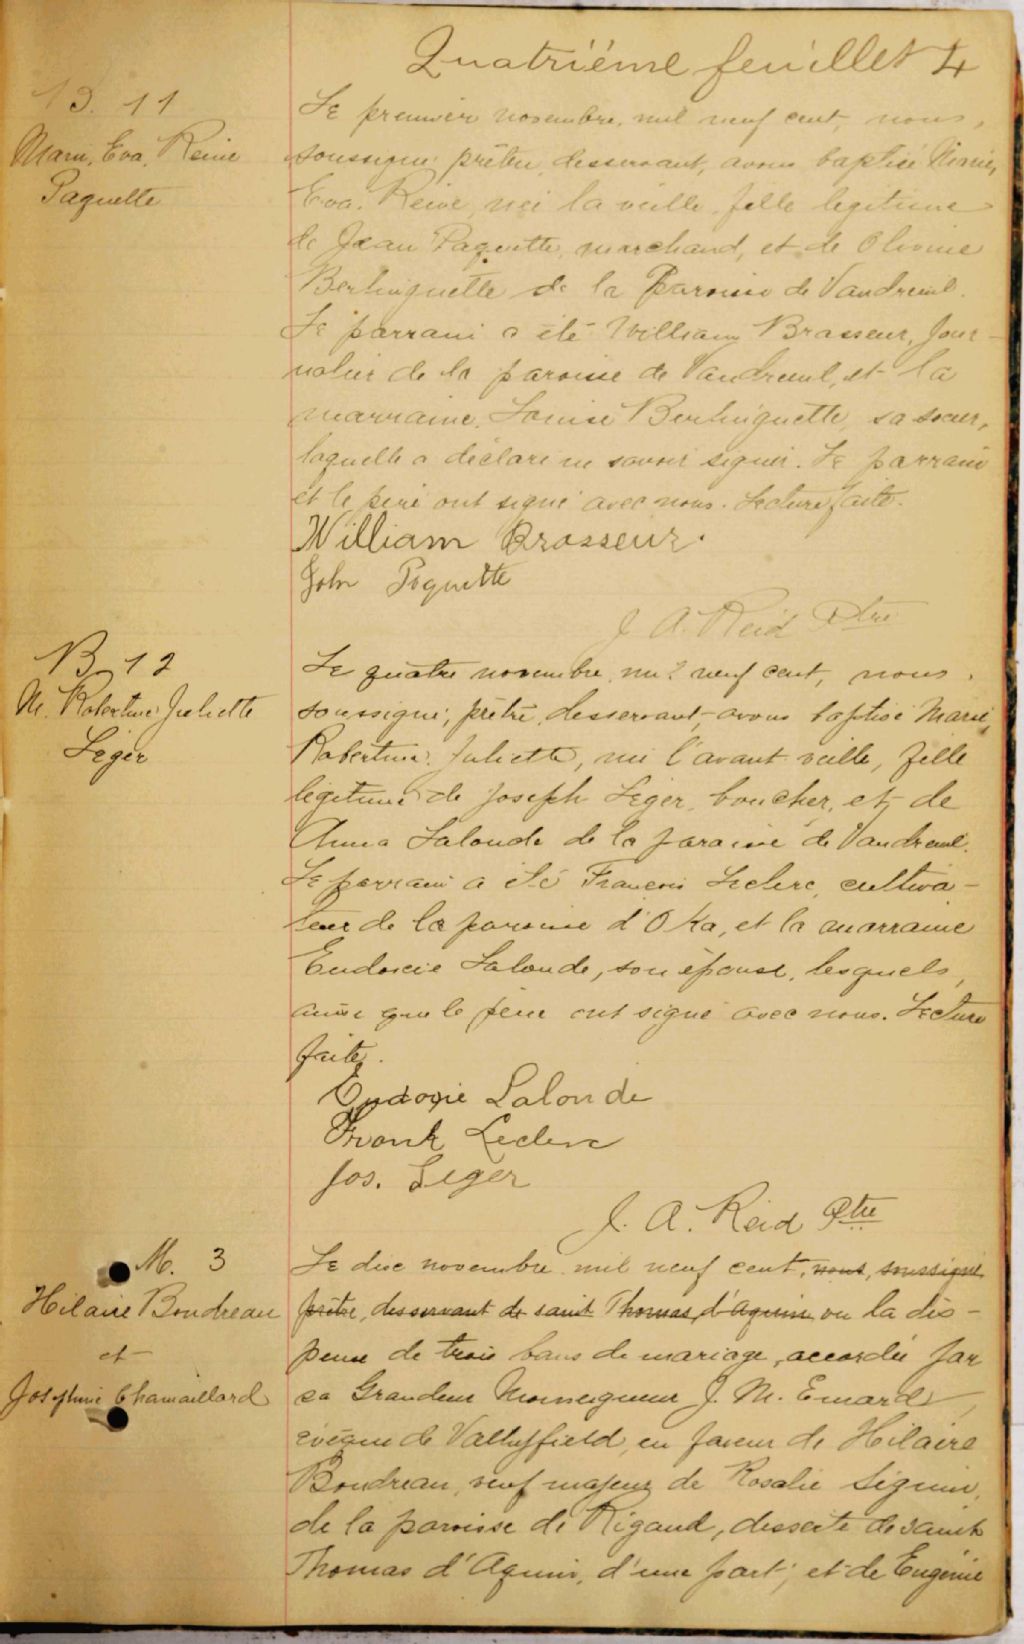 Quatriéme feuillet 4
B. 11
Marie, Eva, Reine
Paquette
Le premier novembre, mil neuf cent, nous,
soussigné prêtre, desservant, avons baptisé Marie,
Eva, Reine, née la veille, fille legitime
de Jean Paquette, marchand, et de Olivine
Berlinguette de la Paroisse de Vaudreuil.
Le parrain a été William Brasseur, jour-
nalier de la paroisse de Vaudreuil, et la
marraine, Louise Berlinguette, sa soeur,
laquelle a déclaré ne savoir signer. Le parrain
et le père ont signé avec nous. Lecture faite.
William Brasseur.
John Paquette
J. A. Reid Ptre
B 12
M. Robertine Juliette
Léger
Le quatre novembre, mil neuf cent, nous,
soussigné, prêtre, desservant, avons baptisé Marie,
Robertine, Juliette, née l'avant veille, fille
légitime de Joseph Léger, boucher, et de
Anna Lalonde de la paroisse de Vaudreuil.
Le parrain a été Francois Leclerc, cultiva-
teur de la paroisse d'Oka, et la marraine
Eudoxie Lalonde, son épouse, lesquels,
ainsi que le père ont signé avec nous. Lecture
faite.
Eudoxie Lalonde
Frank Leclerc
Jos. Leger
J. A. Reid Ptre
M. 3
Hilaire Boudreau
et
Josephine Chamaillard
Le dix novembre mil neuf cent, nous, soussigné
prêtre, desservant de saint Thomas, d'Aquin vu la dis-
pense de trois bans de mariage, accordée par
sa Grandeur Monseigneur J. M. Emard,
évêque de Valleyfield, en faveur de Hilaire
Boudreau, veuf majeur de Rosalie Séguin,
de la paroisse de Rigaud, desserte de saint
Thomas d'Aquin, d'une part; et de Eugénie